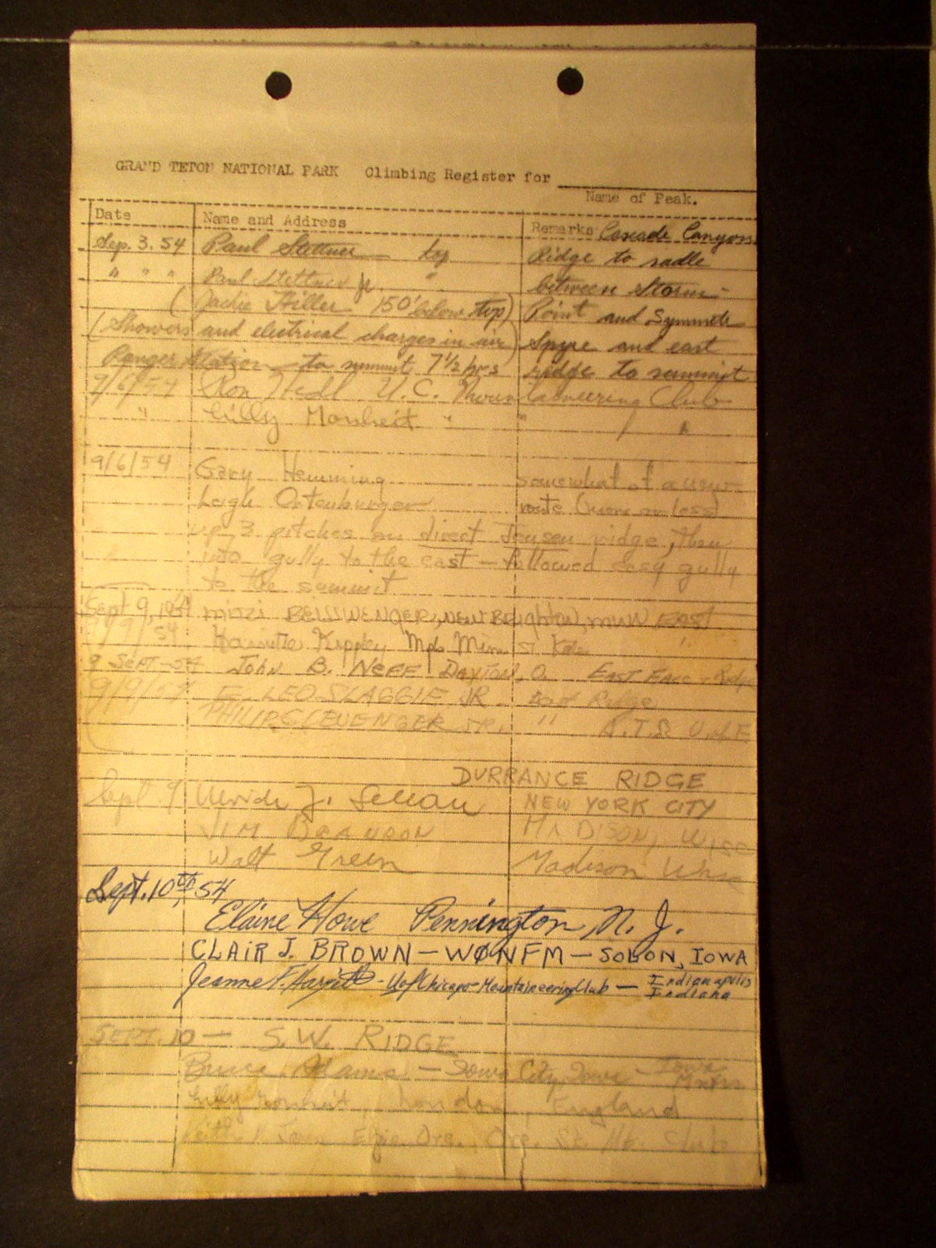 GRAND TETON NATIONAL PARK Climbing Register for
Name of Peak.
Date Name and Address Remarks Cascade Canyon
Sep. 3. 54 Paul Stettner — top Ridge to sadle
" " " Paul Stettner Jr. " between Storm
( Jackie Hiller 150' below top) Point and Symmetr
(Showers and electrical charges in air) Spyre and east
Ranger — to summit 7 1/2 hrs ridge to summit
9/6/54 U.C. Mountaineering Club
" " "
9/6/54 Gary Hemming somewhat of a new
Leigh Ortenburger route (more or less)
up 3 pitches on direct Jensen ridge, then
into gully to the east — followed easy gully
to the summit
Sept 9, 1954 NEW BRIGHTON, MINN EAST
9/9/54 Mpls Minn "
9 SEPT-54 JOHN B. NEFF DAYTON, O. EAST FACE - Ridge
9/9/54 F. LEO SLAGGIE JR. East Ridge
PHILIP CLEVENGER JR. "
DURRANCE RIDGE
Sept 9 J. NEW YORK CITY
JIM MADISON, WISC
Walt Green Madison Wisc
Sept. 10th 54
Elaine Howe Pennington N. J.
CLAIR J. BROWN — WØNFM — SOLON, IOWA
Jeanne - U of Chicago - Mountaineering Club — Indianapolis
Indiana
SEPT. 10 — S.W. RIDGE
Bruce Adams — Iowa City, Iowa — Iowa
London, England
Ore. Ore. St. Mt. Club